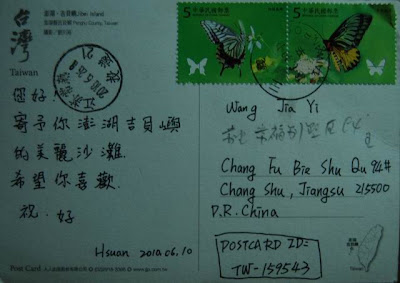 台灣
Taiwan
澎湖・吉貝嶼/Jibei Island
5
中華民國郵票
5
中華民國郵票
您好!
寄予你澎湖吉貝嶼
的美麗沙灘.
希望你喜歡.
祝.好
Hsuan 2010.06.10
Wang Jia Yi
Chang Fu Bie Shu Qu 94#
Chang Shu, Jiangsu 215500
P.R.China
POSTCARD ID:
TW-159543
Post Card